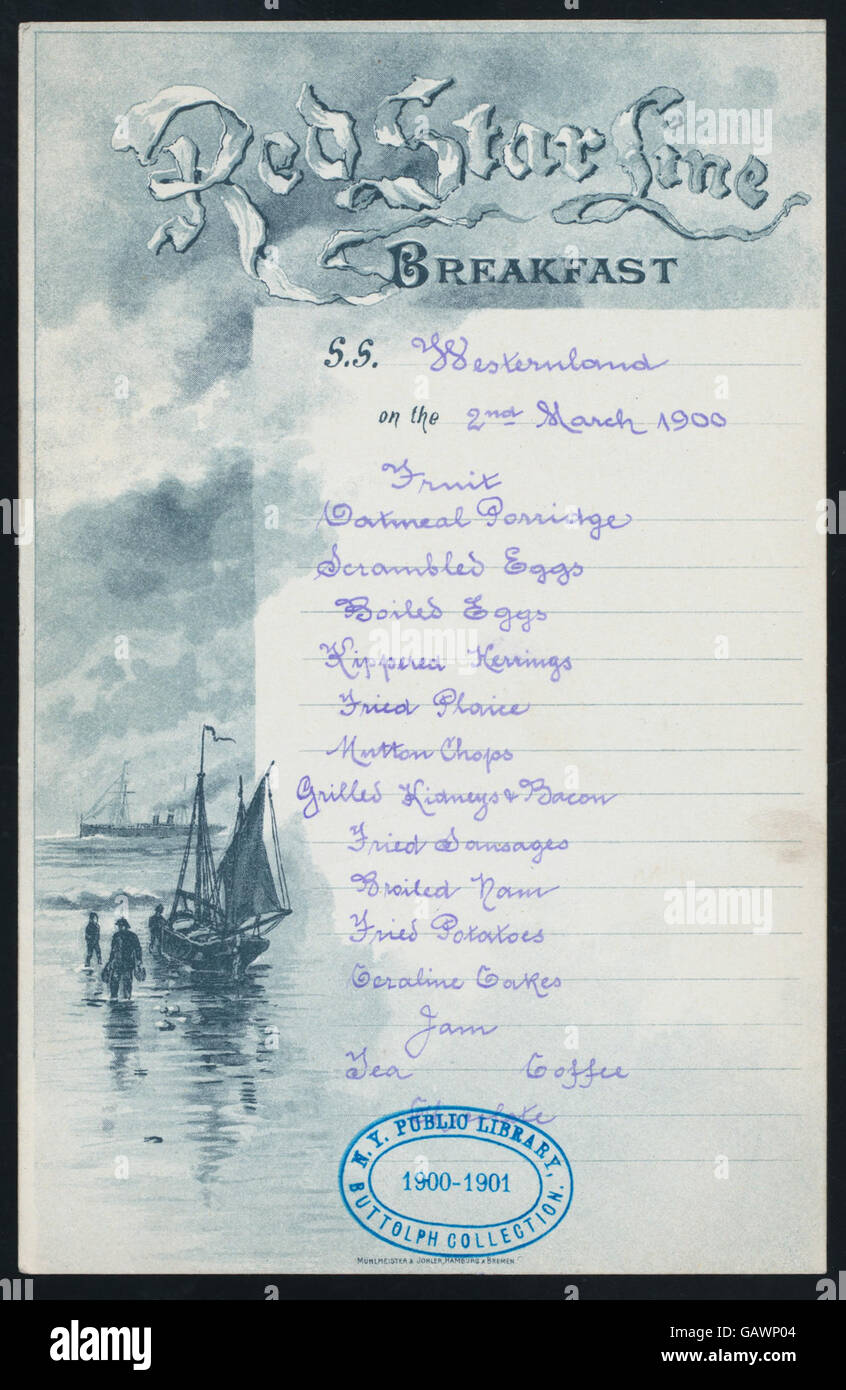 Red Star Line
BREAKFAST
S.S. Westernland
on the 2nd March 1900
Fruit
Oatmeal Porridge
Scrambled Eggs
Boiled Eggs
Kippered Herrings
Fried Plaice
Mutton Chops
Grilled Kidneys & Bacon
Fried Sausages
Broiled Ham
Fried Potatoes
Ceraline Cakes
Jam
Tea Coffee
Chocolate
N.Y. PUBLIC LIBRARY,
1900-1901
BUTTOLPH COLLECTION.
MÜHLMEISTER & JOHLER, HAMBURG & BREMEN.
alamy
alamy stock photo
GAWP04
www.alamy.com